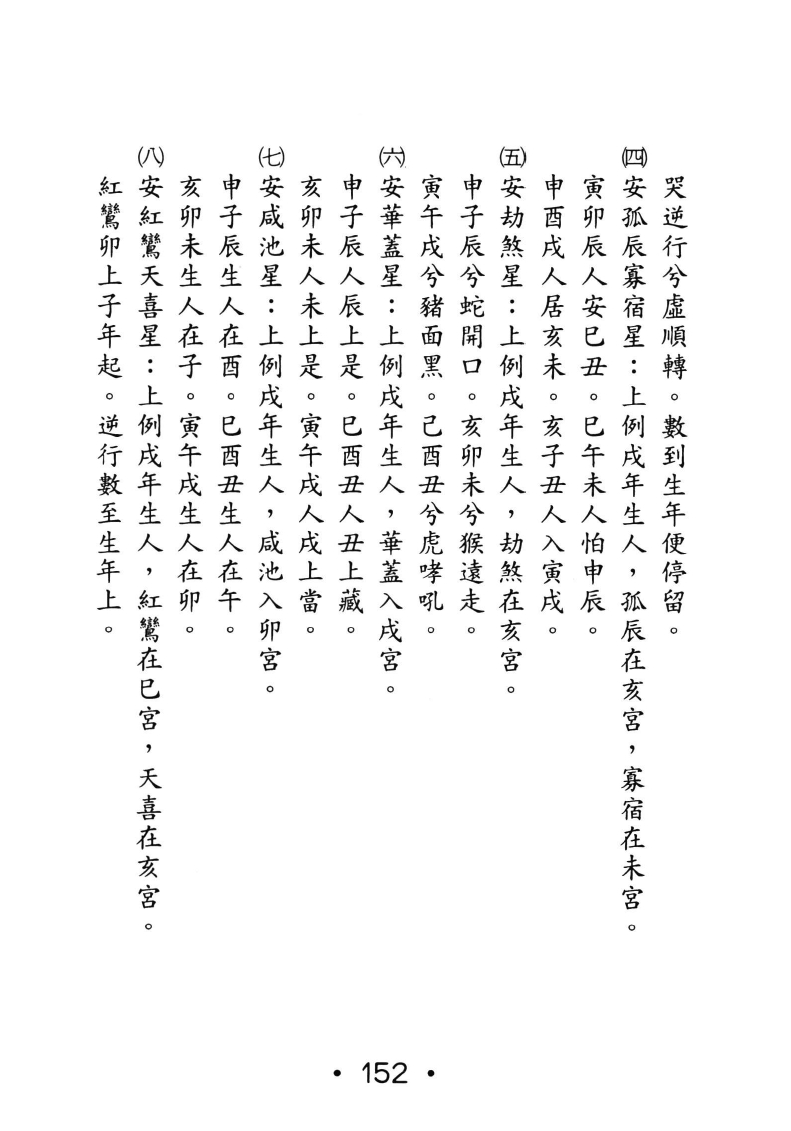 哭逆行兮虛順轉。數到生年便停留。
㈣安孤辰寡宿星：上例戌年生人，孤辰在亥宮，寡宿在未宮。
寅卯辰人安巳丑。巳午未人怕申辰。
申酉戌人居亥未。亥子丑人入寅戌。
㈤安劫煞星：上例戌年生人，劫煞在亥宮。
申子辰兮蛇開口。亥卯未兮猴遠走。
寅午戌兮豬面黑。己酉丑兮虎哮吼。
㈥安華蓋星：上例戌年生人，華蓋入戌宮。
申子辰人辰上是。巳酉丑人丑上藏。
亥卯未人未上是。寅午戌人戌上當。
㈦安咸池星：上例戌年生人，咸池入卯宮。
申子辰生人在酉。巳酉丑生人在午。
亥卯未生人在子。寅午戌生人在卯。
㈧安紅鸞天喜星：上例戌年生人，紅鸞在巳宮，天喜在亥宮。
紅鸞卯上子年起。逆行數至生年上。
• 152 •